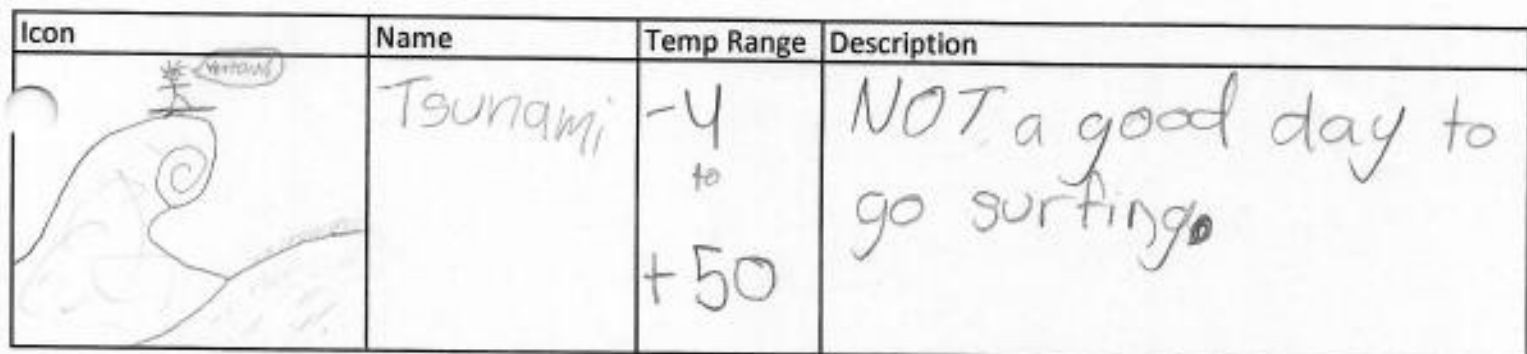 Icon Name Temp Range Description
Tsunami
-4
to
+50
NOT a good day to
go surfing.